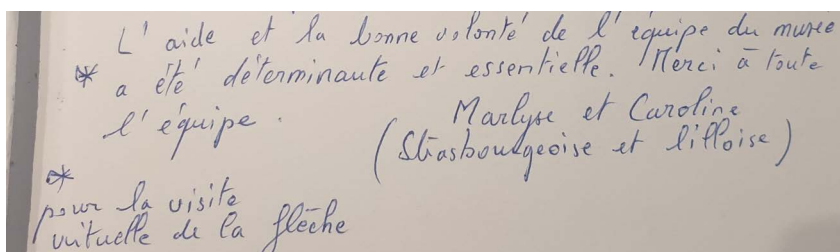 L' aide et la bonne volonté de l'équipe du musée
* a été déterminante et essentielle. Merci à toute
l'équipe.
Marlyse et Caroline
(Strasbourgeoise et lilloise)
*
pour la visite
virtuelle de la flèche